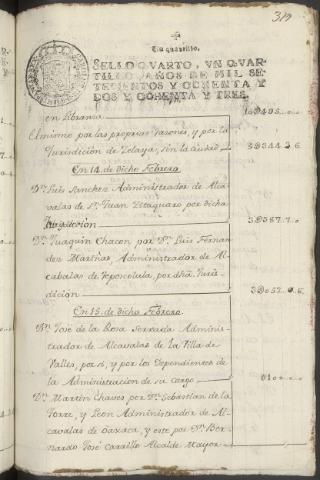 Un quartillo.
SELLO QVARTO, VN QVAR-
TILLO, AÑOS DE MIL SE-
TECIENTOS Y OCHENTA Y
DOS Y OCHENTA Y TRES.
en Libranza
El mismo por las proprias razones, y por la
Jurisdicion de Zelaya, sin la ciudad
En 14. de dicho Febrero
Dn. Luis Sanchez Administrador de Alca-
valas de Sn. Juan Zitaquaro por dicha
Jurisdicion
Dn. Juaquin Chacon por Dn. Luis Fernan
dez Martinez, Administrador de Al-
cabalas de Teposcolula, por dha. Juris-
dicion
En 15. de dicho Febrero
Dn. José de la Rosa Serrada Adminis-
trador de Alcavalas de la Villa de
Valles, por si, y por los Dependientes de
la Administracion de su cargo
Dn. Martin Chaves por Dn. Sebastian de la
Torre, y Leon Administrador de Al-
cavalas de Oaxaca, y este por Dn. Ber-
nardo José Carrillo Alcalde Mayor